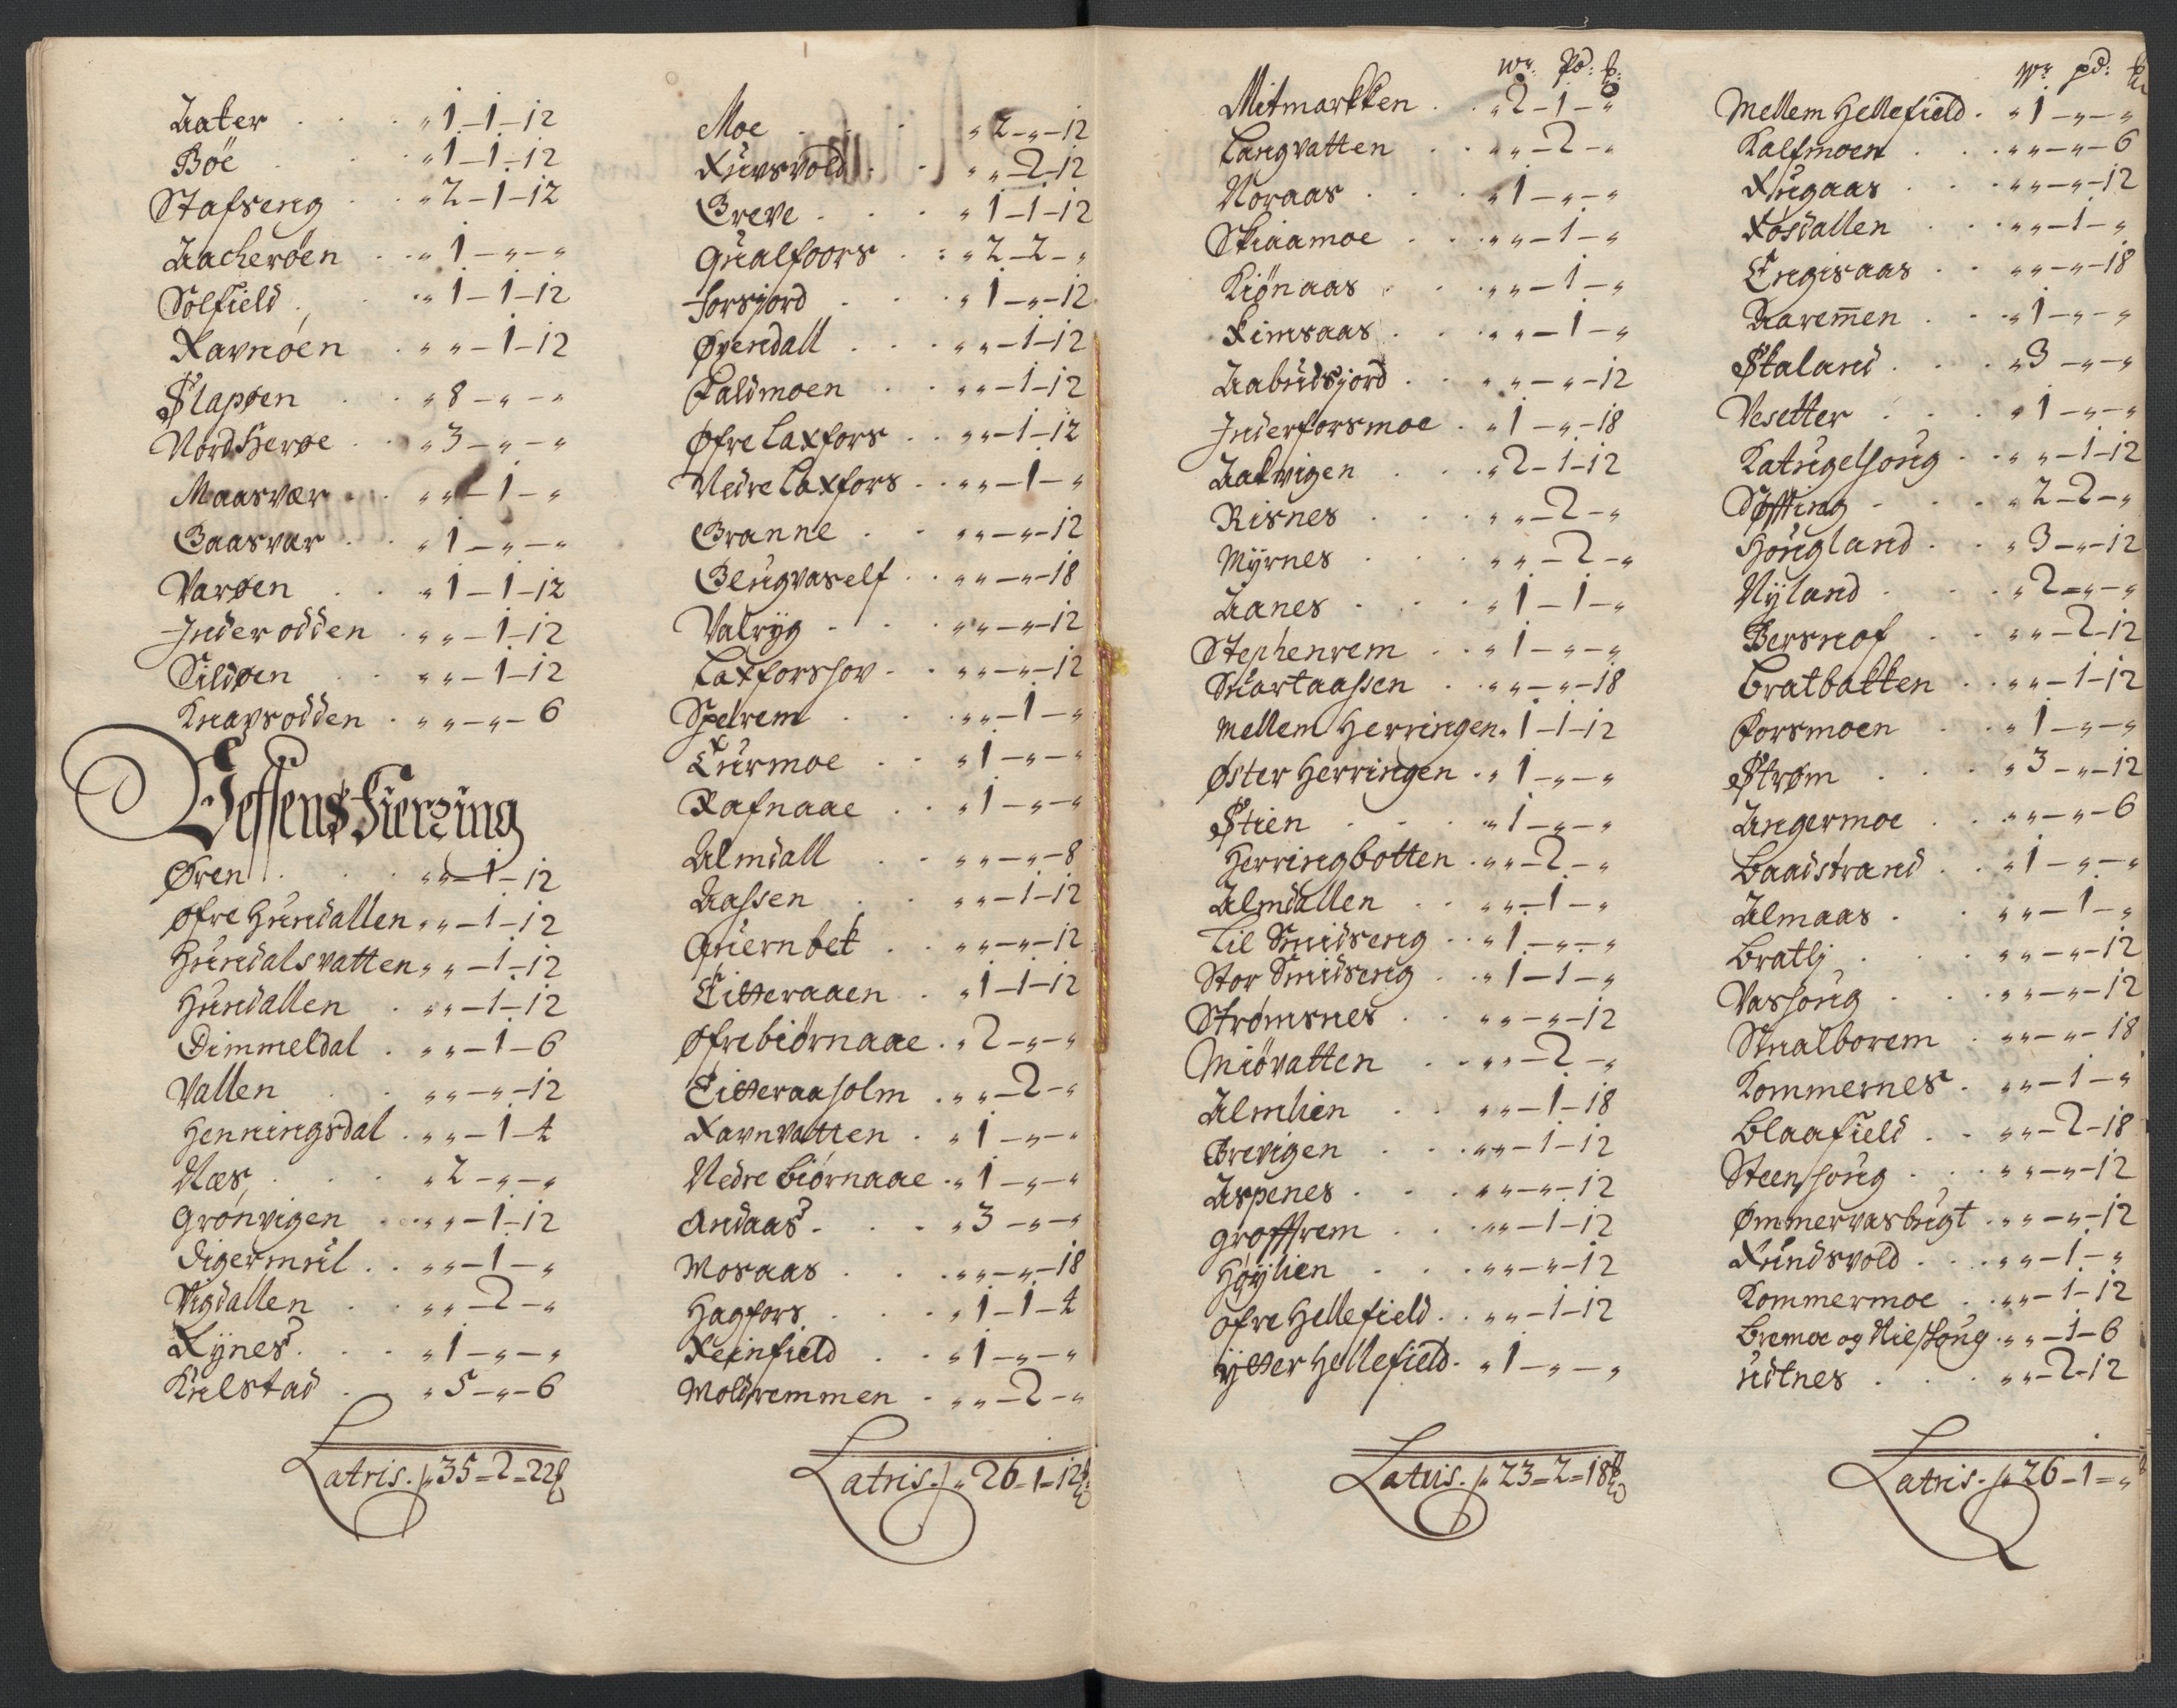 Aaker . . . „ 1 – 1 – 12
Böe . . „ 1 – 1 – 12
Stafseng . . „ 2 – 1 – 12
Aacherøen . . „ 1 – „ – „
Solfield . . „ 1 – 1 – 12
Ravnøen . „ „ – 1 – 12
Slapøen . „ 8 – „ – „
Nord Herøe . . „ 3 – „ – „
Maasvær . „ „ – 1 – „
Gaasvar . . „ 1 – „ – „
Varøen . . „ 1 – 1 – 12
Inderodden . „ „ – 1 – 12
Sildøen . „ „ – 1 – 12
Knavsodden . „ „ – „ – 6
Vefsens Fierzing
Øren . . „ „ – 1 – 12
øfre Hundallen „ „ – 1 – 12
Hundalsvatten „ „ – 1 – 12
Hundallen . „ „ – 1 – 12
Dimmeldal . „ „ – 1 – 6
Vallen . „ „ – „ – 12
Henningsdal . „ „ – 1 – 4
Næs . . „ 2 – „ – „
Grønvigen . . „ „ – 1 – 12
Digermul . . „ „ – 1 – „
Vigdallen . „ „ – 2 – „
Rynes . . „ 1 – „ – „
Kulstad . „ 5 – „ – 6
Latris . „ 35 = 2 = 22
Moe . . . „ 2 – „ – 12
Ruvsvold . . „ „ – 2 – 12
Greve . . . „ 1 – 1 – 12
Qualfoors . : „ 2 – 2 – „
Forsjord . . „ 1 – „ – 12
Øvendall . . „ „ – 1 – 12
Faldmoen . . „ „ – 1 – 12
Øfre Laxfors . . „ „ – 1 – 12
Nedre Laxfors . . „ „ – 1 – „
Granne . . „ „ – „ – 12
Glugvaself . . „ „ – „ – 18
Valryg . . „ „ – „ – 12
Laxforshov . . „ „ – „ – 12
Spelrem . . „ „ – 1 – „
Turmoe . . „ 1 – „ – „
Rafnaae . . „ 1 – „ – „
Almdall . . „ „ – „ – 8
Aassen . . „ „ – 1 – 12
Quernbek . . „ „ – „ – 12
Eitteraaen . „ 1 – 1 – 12
Øfre biørnaae . „ 2 – „ – „
Eitteraaholm . „ „ – 2 – „
Ravnvatten . „ 1 – „ – „
Nedre biørnaae . „ 1 – „ – „
Andaas . . „ 3 – „ – „
Mosaas . . „ „ – „ – 18
Hagfors . . „ 1 – 1 – 4
Reinfield . . „ 1 – „ – „
Moldremmen . „ „ – 2 – „
Latris . „ 26 = 1 = 12
Wr. Pd: ℔:
Mitmarkken . . „ 2 – 1 – „
Langvatten . . „ „ – 2 – „
Noraas . . . „ 1 – „ – „
Skiaamoe . . „ „ – 1 – „
Kiönaas . . „ „ – 1 – „
Kimsaas . . „ „ – 1 – „
Aabudsjord . „ „ – „ – 12
Inderforsmoe . „ 1 – „ – 18
Aalvigen . . „ 2 – 1 – 12
Risnes . . „ „ – 2 – „
Myrnes . . „ „ – 2 – „
Aanes . . . „ 1 – 1 – „
Stephenrem . . „ 1 – „ – „
Suartaassen . „ „ – „ – 18
Mellem Herringen „ 1 – 1 – 12
Øster Herringen . „ 1 – „ – „
Stien . . „ 1 – „ – „
Herringbotten . „ „ – 2 – „
Almdallen . . „ „ – 1 – „
Lil Smidseng . . „ 1 – „ – „
Stor Smidseng . „ 1 – 1 – „
Strømsnes . . „ „ – „ – 12
Miøvatten . . „ „ – 2 – „
Almlien . . „ „ – 1 – 18
Brevigen . . „ „ – 1 – 12
Aspenes . . . „ „ – „ – 12
Groffrem . . „ „ – 1 – 12
Høylien . . . „ „ – „ – 12
Øfre Hellefield . . „ „ – 1 – 12
Ytter Hellefield . „ 1 – „ – „
Latris . „ 23 = 2 = 18
Wr pd: ℔
Mellem Hellefield . „ 1 – „ – „
Kalfmoen . . . „ „ – „ – 6
Rugaas . . . „ „ – „ – 12
Røsdallen . . „ „ – 1 – „
Engisaas . . „ „ – „ – 18
Aarem̅en . . „ 1 – „ – „
Skaland . . . „ 3 – „ – „
Vesetter . . . „ 1 – „ – „
Katugelhoug . . „ „ – 1 – 12
Søffting . . . „ 2 – 2 – „
Hougland . . „ 3 – „ – 12
Nyland . . . „ 2 – „ – „
Bersnof . . „ „ – 2 – 12
Bratbakken . . „ „ – 1 – 12
Forsmoen . . . „ 1 – „ – „
Strøm . . „ 3 – „ – 12
Angermoe . . „ „ – „ – 6
Baadstrand . . „ 1 – „ – „
Almaas . . „ „ – 1 – „
Bratlj . . „ „ – „ – 12
Vashoug . . . „ „ – „ – 12
Smalborem . „ „ – „ – 18
Kommernes . „ „ – 1 – „
Blaafield . . „ „ – 2 – 18
Steenhoug . . . „ „ – „ – 12
Ømmervasbugt . „ „ – „ – 12
Rundsvold . . . „ „ – 1 – „
Kommermoe . „ „ – 1 – 12
Bremoe og Nielshoug . „ „ – 1 – 6
Udtnes . . . „ „ – 2 – 12
Latris . „ 26 – 1 = „